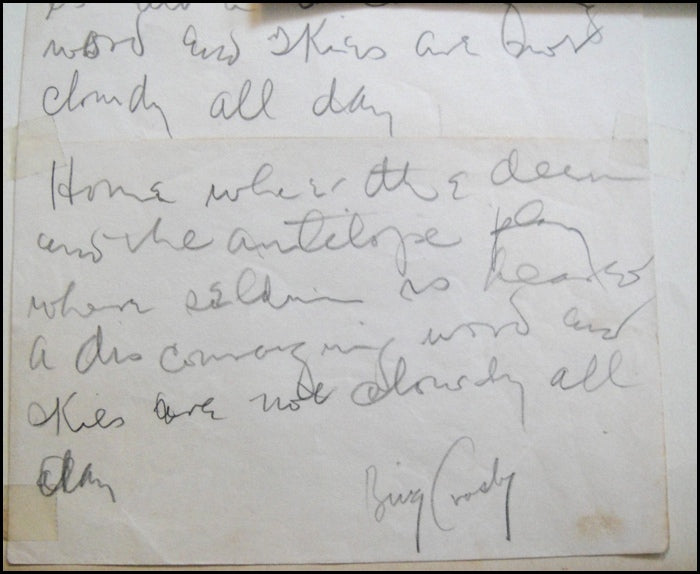 word and skies are not
cloudy all day
Home where the deer
and the antilope play
where seldum is heard
a discouraging word and
skies are not cloudy all
day
Bing Crosby